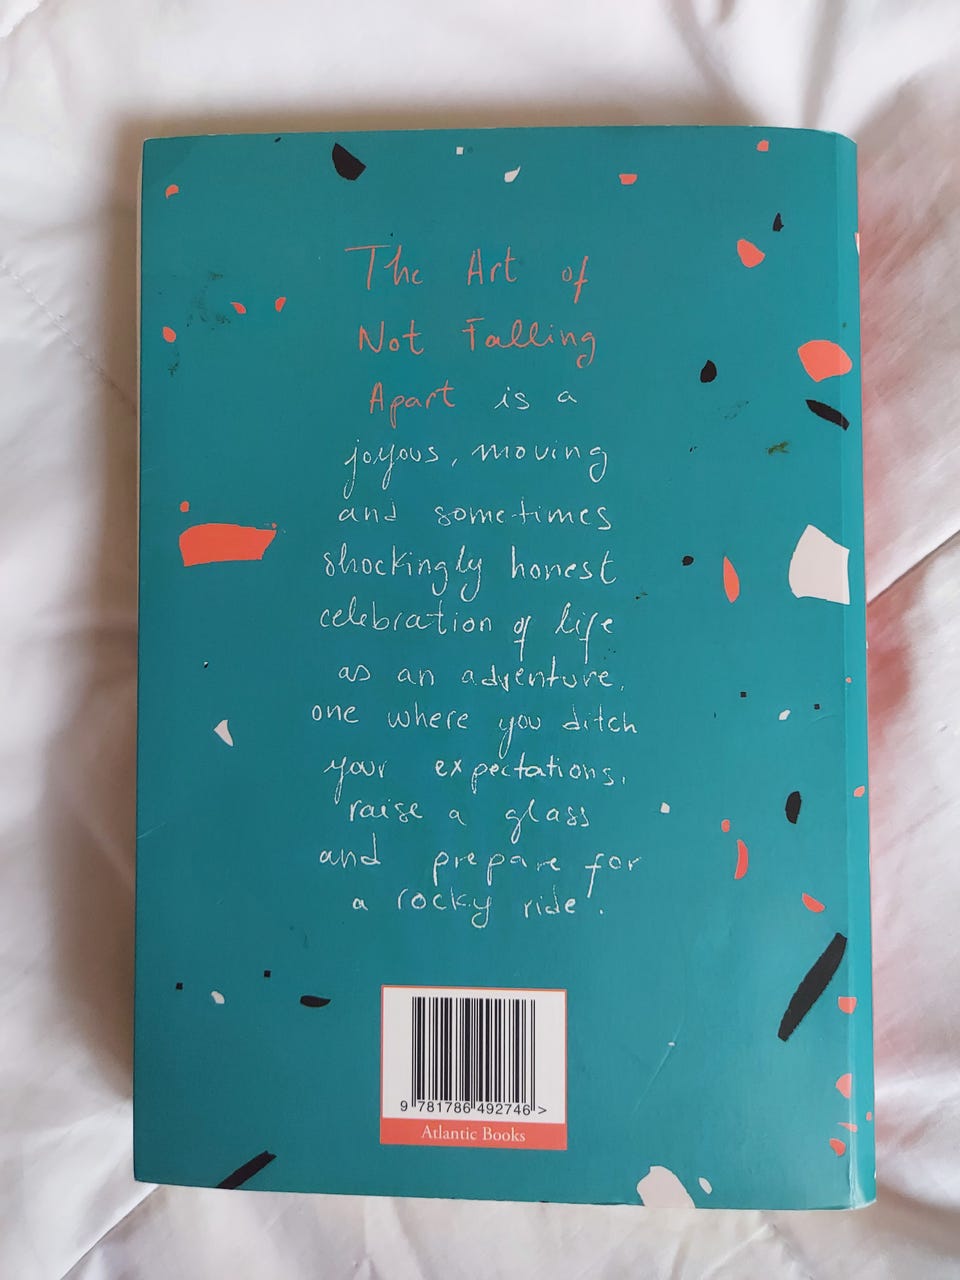 The Art of
Not Falling
Apart is a
joyous, moving
and sometimes
shockingly honest
celebration of life
as an adventure,
one where you ditch
your expectations,
raise a glass
and prepare for
a rocky ride.
9 781786 492746 >
Atlantic Books